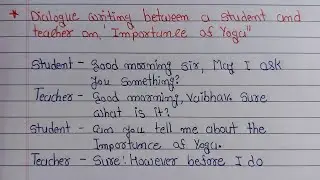 * Dialogue writing between a student and
teacher on, "Importance of Yoga"
Student - Good morning sir, May I ask
you something?
Teacher - Good marning, Vaibhav. Sure
what is it?
Student - Can you tell me about the
Importance of Yoga.
Teacher - Sure! However before I do